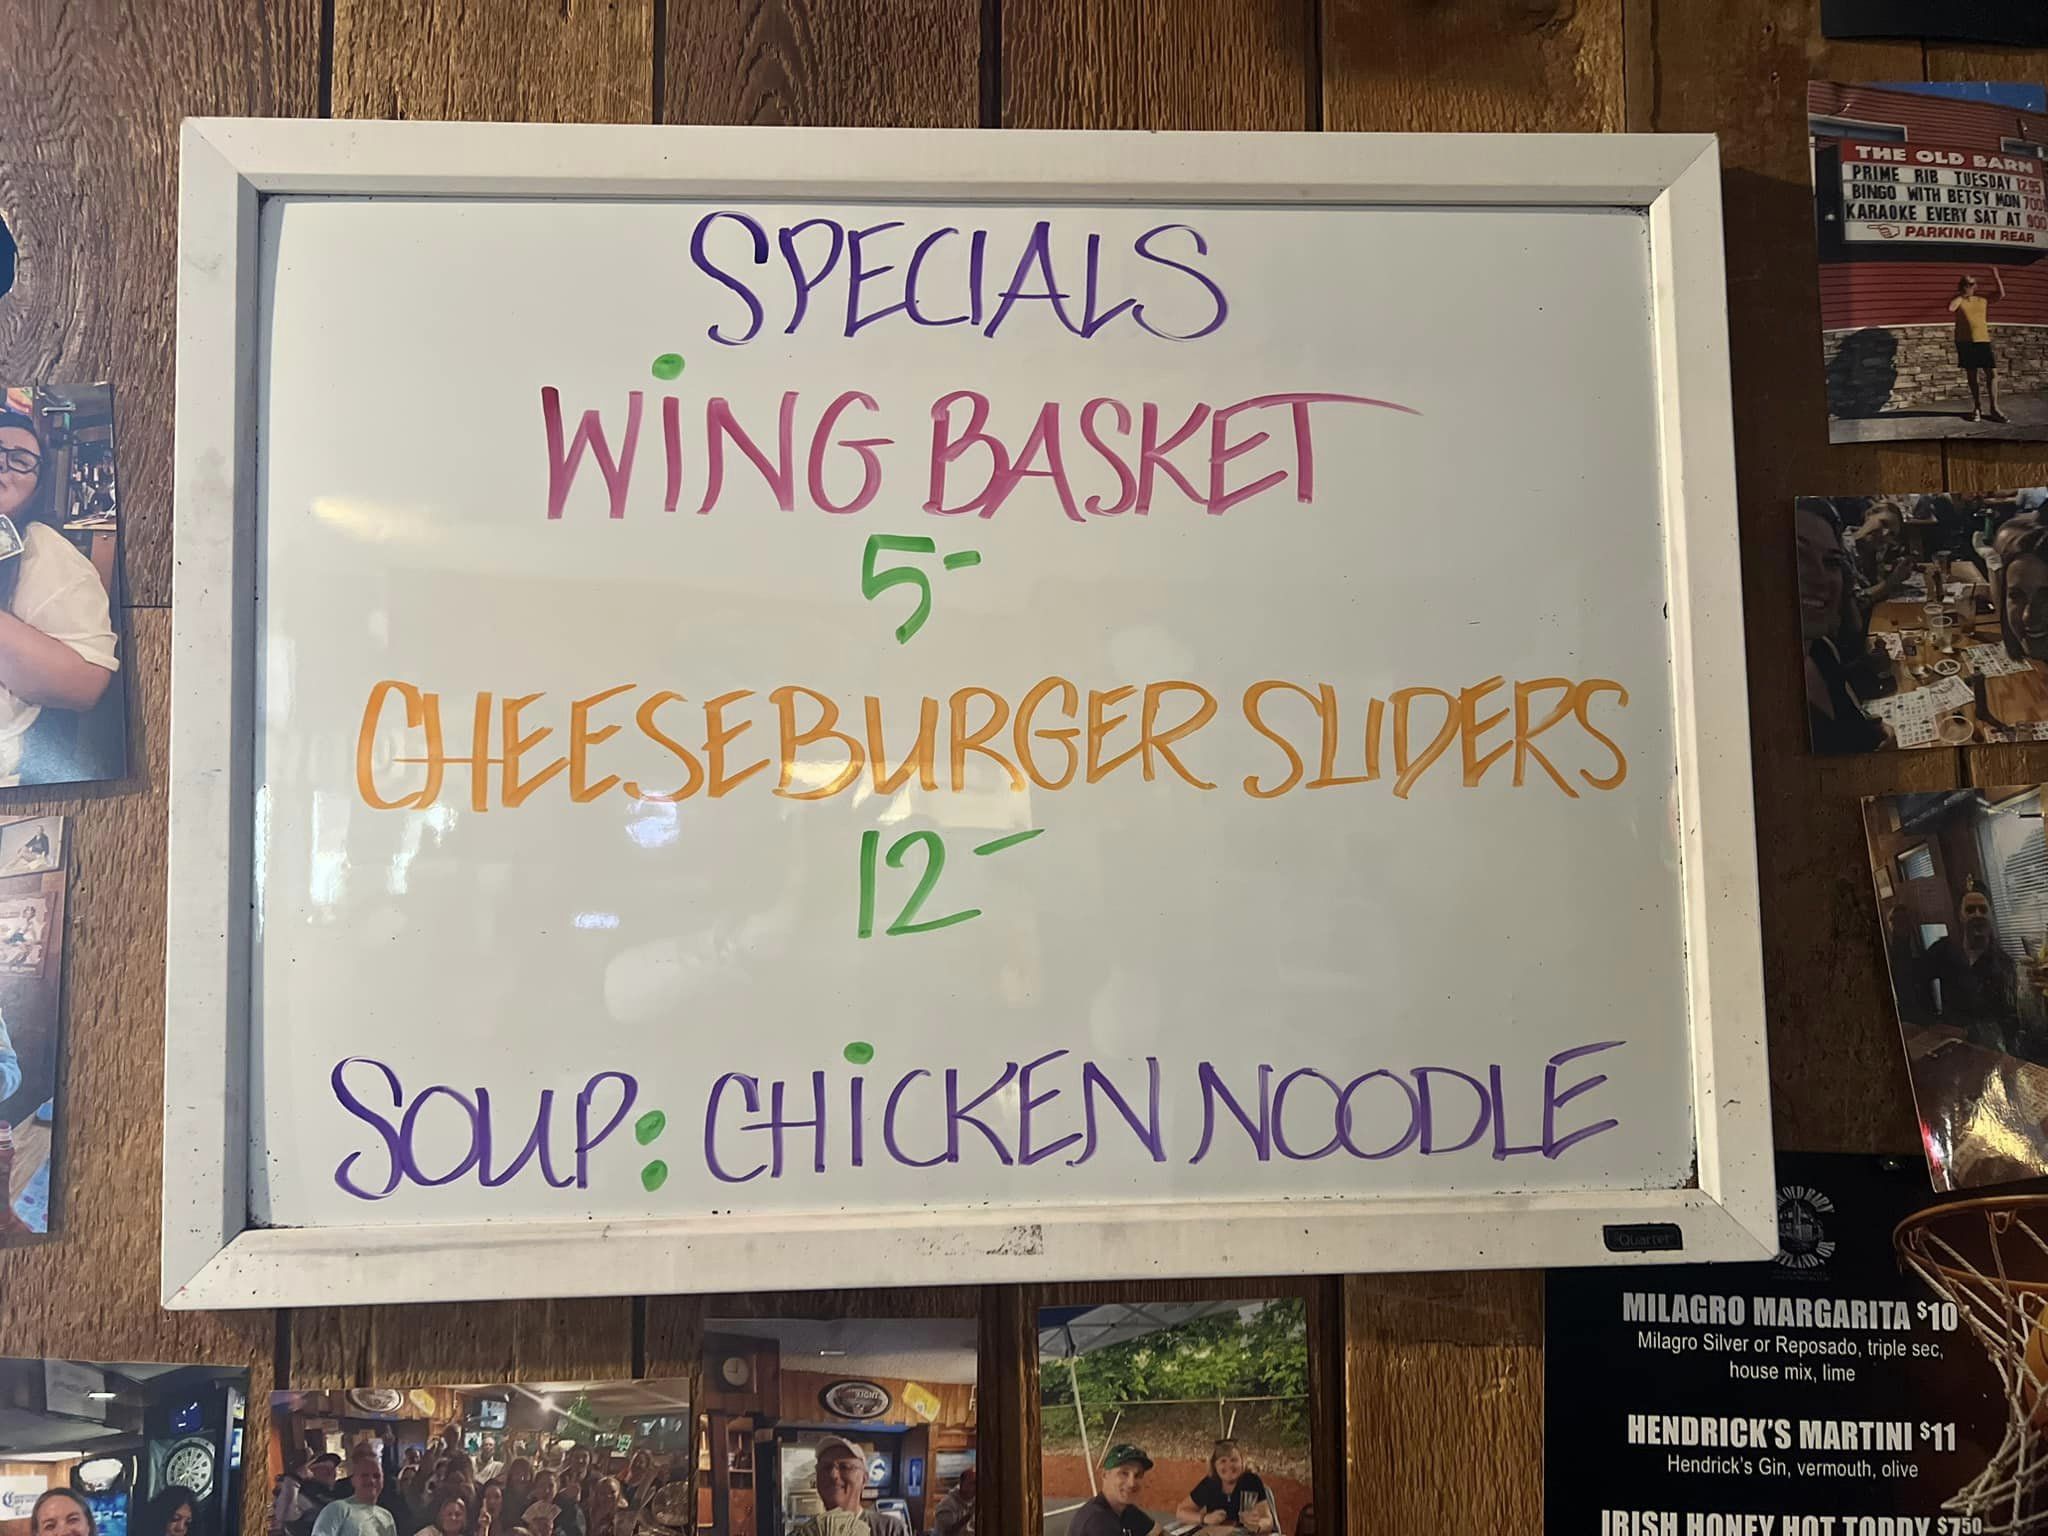 SPECIALS
WiNG BASKET
5-
CHEESEBURGER SLIDERS
12-
SOUP: CHiCKEN NOODLE
Quartet
THE OLD BARN
PRIME RIB TUESDAY 12.95
BINGO WITH BETSY MON 700
KARAOKE EVERY SAT AT 900
PARKING IN REAR
MILAGRO MARGARITA $10
Milagro Silver or Reposado, triple sec,
house mix, lime
HENDRICK'S MARTINI $11
Hendrick's Gin, vermouth, olive
IRISH HONEY HOT TODDY $7.50